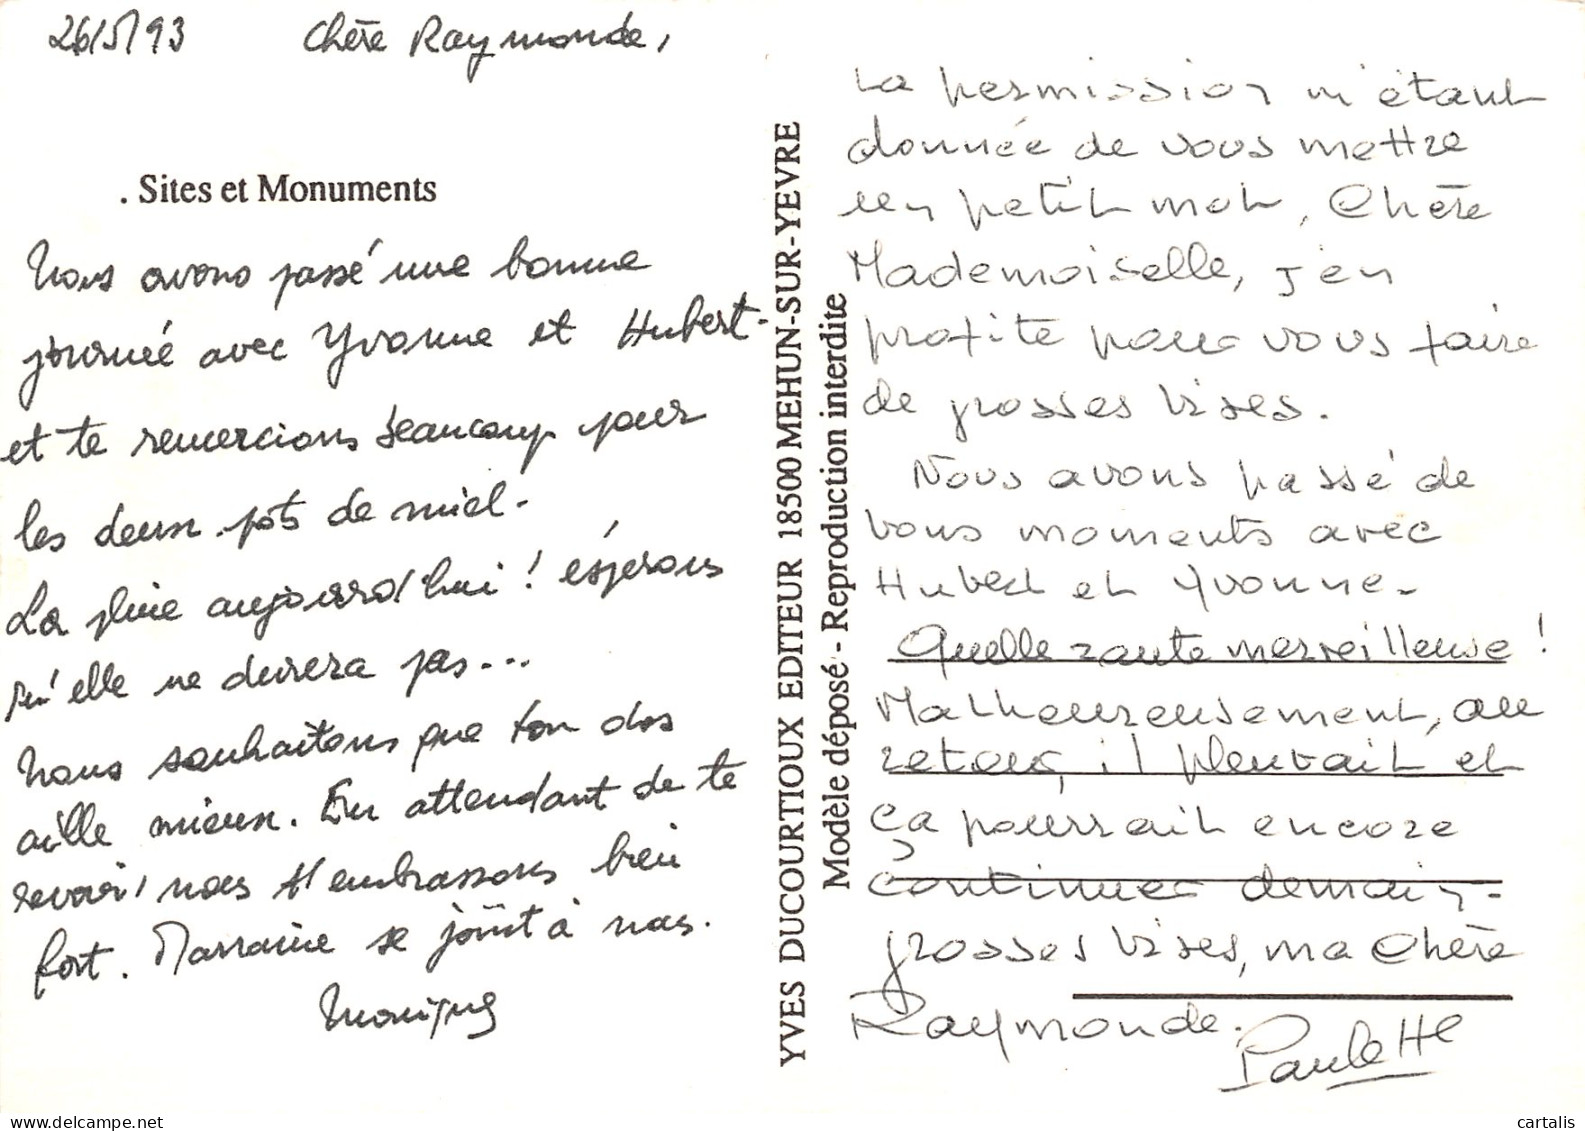 26/5/93 Chère Raymonde,
. Sites et Monuments
Nous avons passé une bonne
journée avec Yvonne et Hubert-
et te remercions beaucoup pour
les deux pots de miel.
La pluie aujourd'hui ! éspérons
qu'elle ne durera pas...
Nous souhaitons que ton dos
aille mieux. En attendant de te
revoir, nous t'embrassons bien
fort. Marraine se joint à nous.
Monique
YVES DUCOURTIOUX EDITEUR 18500 MEHUN-SUR-YEVRE
Modèle déposé - Reproduction interdite
La permission m'étant
donnée de vous mettre
un petit mot, Chère
Mademoiselle, j'en
profite pour vous faire
de grosses bises.
Nous avons passé de
bons moments avec
Hubert et Yvonne.
Quelle route merveilleuse !
Malheureusement, au
retour, il pleuvait et
ça pourrait encore
continuer demain.
grosses bises, ma Chère
Raymonde.
Paulette
cartalis
www.delcampe.net